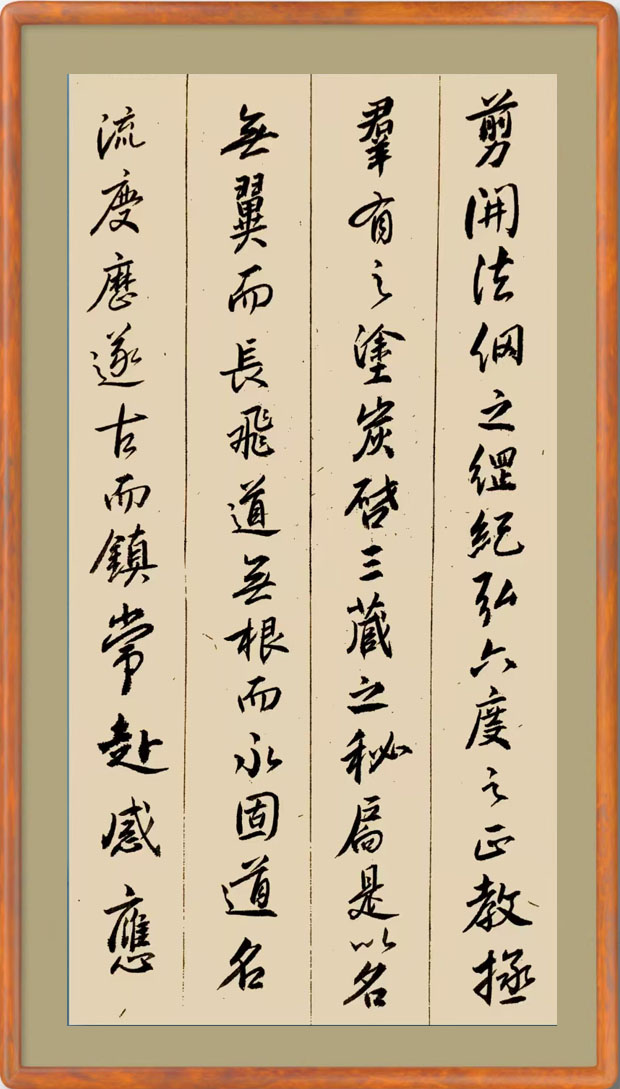 剪開法網之綱紀弘六度之正教拯
羣有之塗炭啓三藏之秘扃是以名
無翼而長飛道無根而永固道名
流慶歷遂古而鎮常赴感應